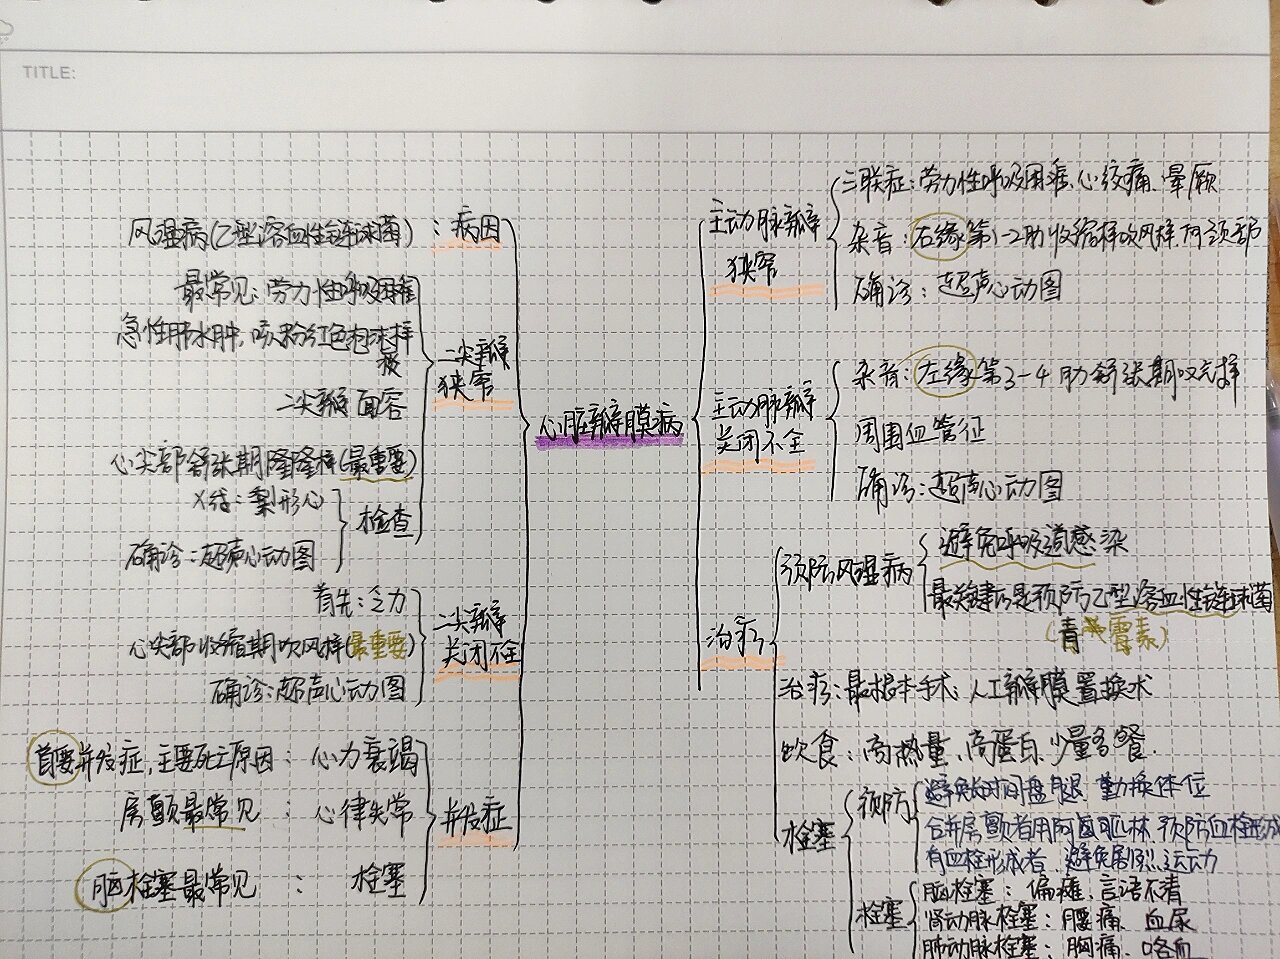 TITLE:
心脏瓣膜病
风湿病(乙型溶血性链球菌):病因
二尖瓣
狭窄
最常见:劳力性呼吸困难
急性肺水肿,咳粉红色泡沫样
痰
二尖瓣面容
心尖部舒张期隆隆样(最重要)
X线:梨形心
确诊:超声心动图
检查
二尖瓣
关闭不全
首先:乏力
心尖部收缩期吹风样(最重要)
确诊:超声心动图
并发症
首要并发症,主要死亡原因:心力衰竭
房颤最常见:心律失常
脑栓塞最常见:栓塞
主动脉瓣
狭窄
三联症:劳力性呼吸困难、心绞痛、晕厥
杂音:右缘第1-2肋收缩样吹风样,向颈部
确诊:超声心动图
主动脉瓣
关闭不全
杂音:左缘第3-4肋舒张期叹气样
周围血管征
确诊:超声心动图
治疗
预防风湿病
避免呼吸道感染
最关键后是预防乙型溶血性链球菌
(青霉素)
治疗:最根本手术:人工瓣膜置换术
饮食:高热量、高蛋白、少量多餐.
栓塞
预防
避免长时间盘腿、勤换体位
合并房颤者用阿司匹林、预防血栓形成
有血栓形成者、避免剧烈运动
栓塞
脑栓塞:偏瘫、言语不清
肾动脉栓塞:腰痛、血尿
肺动脉栓塞:胸痛、咯血